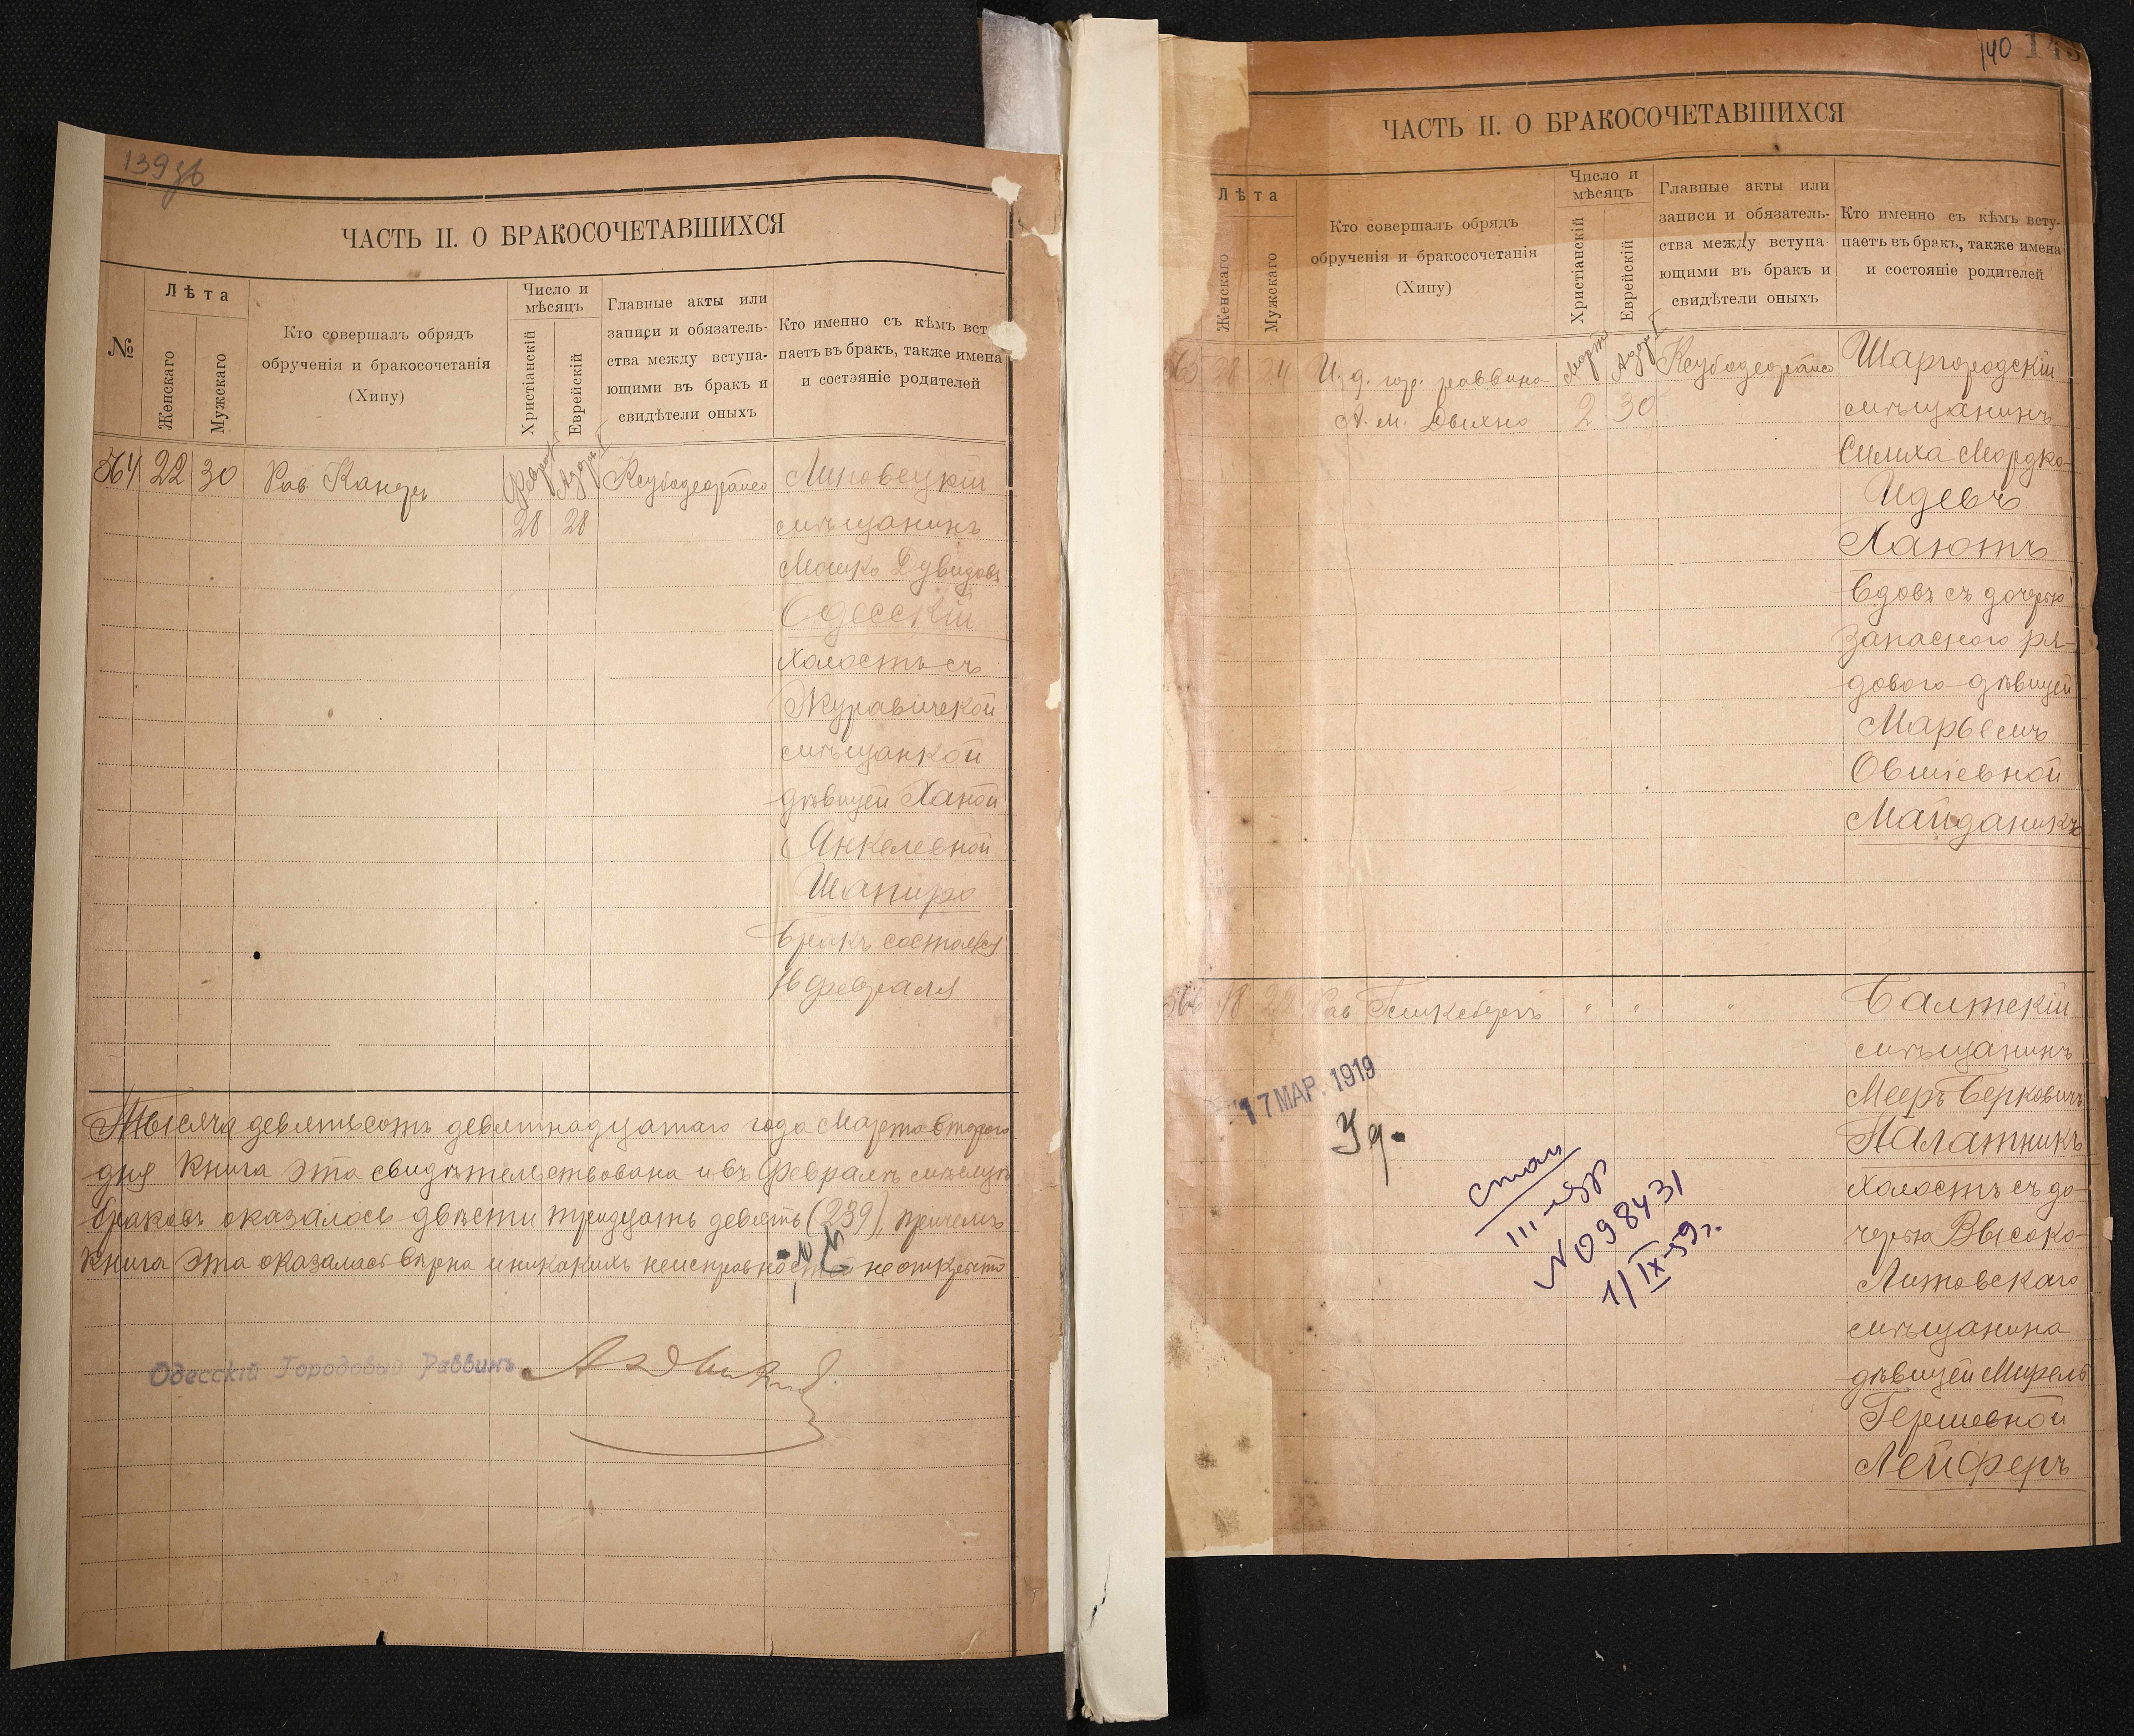 139 об
ЧАСТЬ II. О БРАКОСОЧЕТАВШИХСЯ
№
Лѣта
Женскаго
Мужскаго
Кто совершалъ обрядъ
обрученія и бракосочетанія
(Хипу)
Число и
мѣсяцъ
Христіанскій
Еврейскій
Главные акты или
записи и обязатель-
ства между вступа-
ющими въ бракъ и
свидѣтели оныхъ
Кто именно съ кѣмъ вст
паетъ въ бракъ, также имена
и состояніе родителей
564 22 30
Рав.
28 28
Липовецкій
мѣщанинъ
Мошко Дувидовъ
Одесскій
холостъ съ
Журавичской
мѣщанкой
дѣвицей Ханой
Янкелевной
Шапиро
бракъ состоялся
16 февраля
Тысяча девятьсотъ девятнадцатаго года Марта второго
дня книга эта свидѣтельствована и въ Февралѣ мѣсяцѣ
браковъ оказалось двѣсти тридцать девять (239), причемъ
книга эта оказалась вѣрна и никакихъ неисправностей не открыто
Одесскій Городовый Раввинъ
140 143
ЧАСТЬ II. О БРАКОСОЧЕТАВШИХСЯ
Лѣта
Женскаго
Мужскаго
Кто совершалъ обрядъ
обрученія и бракосочетанія
(Хипу)
Число и
мѣсяцъ
Христіанскій
Еврейскій
Главные акты или
записи и обязатель-
ства между вступа-
ющими въ бракъ и
свидѣтели оныхъ
Кто именно съ кѣмъ всту-
паетъ въ бракъ, также имена
и состояніе родителей
565 28 24
И. д. гор. раввина
А. М.
Марта
2 30
Шаргородскій
мѣщанинъ
Мордко-
Идевъ
Хаютъ
вдовъ съ дочерью
запасного ря-
дового дѣвицей
Марьемъ
Овшіевной
Майданикъ
566 18 22
Рав.
" " "
Балтскій
мѣщанинъ
Мееръ Берковичъ
Палатникъ
холостъ съ до-
черью Высоко-
Литовскаго
мѣщанина
дѣвицей Мирель
Гершевной
Лейферъ
17 МАР. 1919
N 098431
1/IX-59 г.